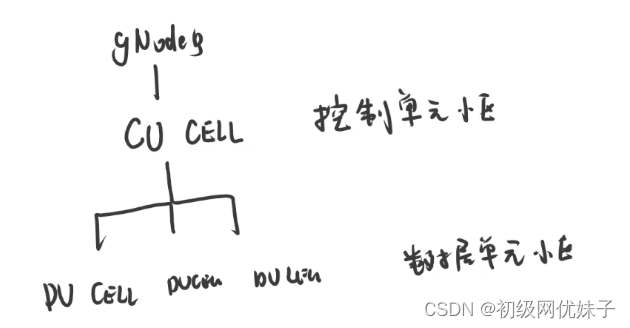 gNodeB
CU CELL 控制单元小区
DU CELL DUCELL DU CELL 数据单元小区
CSDN @初级网优妹子